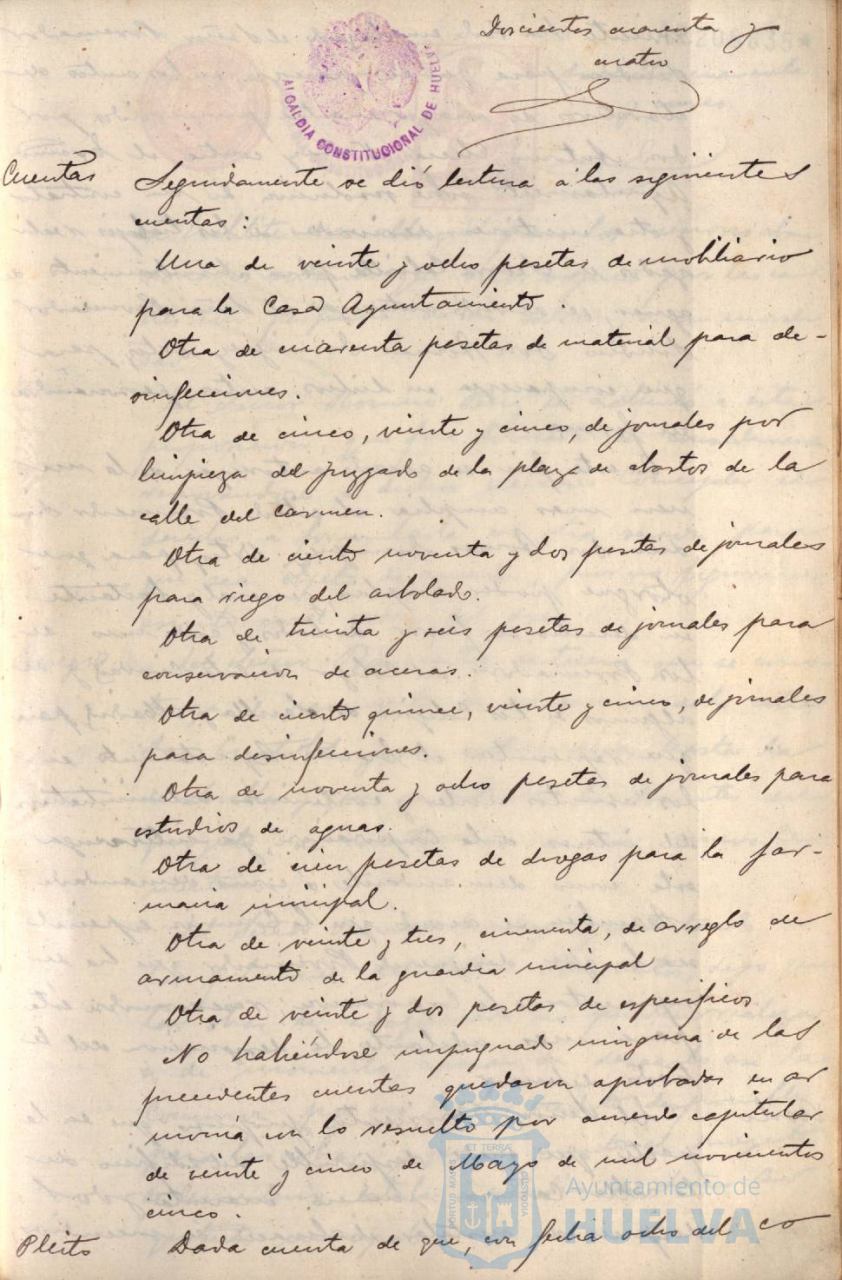 Doscientos cuarenta y
cuatro
ALCALDIA CONSTITUCIONAL DE HUELVA
Cuentas
Seguidamente se dió lectura á las siguientes
cuentas:
Una de veinte y ocho pesetas de mobiliario
para la Casa Ayuntamiento.
Otra de cuarenta pesetas de material para de-
sinfecciones.
Otra de cinco, veinte y cinco, de jornales por
limpieza del juzgado de la plaza de abastos de la
calle del Carmen.
Otra de ciento noventa y dos pesetas de jornales
para riego del arbolado.
Otra de treinta y seis pesetas de jornales para
conservacion de aceras.
Otra de ciento quince, veinte y cinco, de jornales
para desinfecciones.
Otra de noventa y ocho pesetas de jornales para
estudios de aguas.
Otra de cien pesetas de drogas para la far-
macia municipal.
Otra de veinte y tres, cincuenta, de arreglo de
armamento de la guardia municipal
Otra de veinte y dos pesetas de especificos
No habiéndose impugnado ninguna de las
precedentes cuentas quedaron aprobadas en ar
monia con lo resuelto por acuerdo capitular
de veinte y cinco de Mayo de mil novecientos
cinco.
Pleito
Dada cuenta de que, con fecha ocho del co
PORTUS MARIS ET TERRAE CUSTODIA
Ayuntamiento de
HUELVA